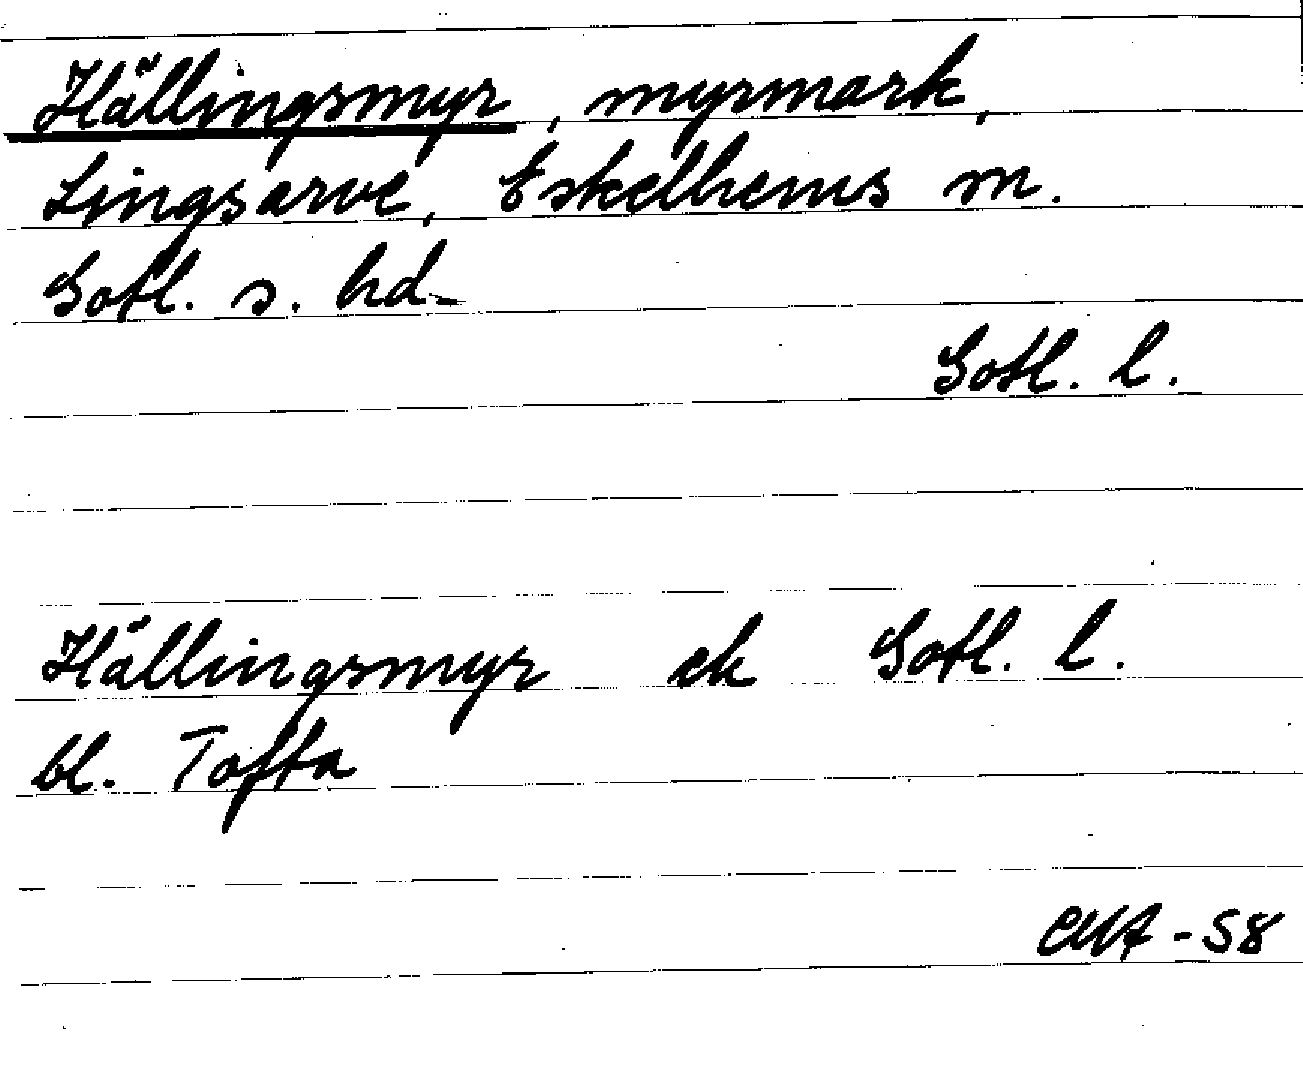 Hällingsmyr, myrmark,
Lingsarve, Eskelhems sn.
Gotl. s. hd.
Gotl. l.
Hällingsmyr ek Gotl. l.
bl. Tofta
-58